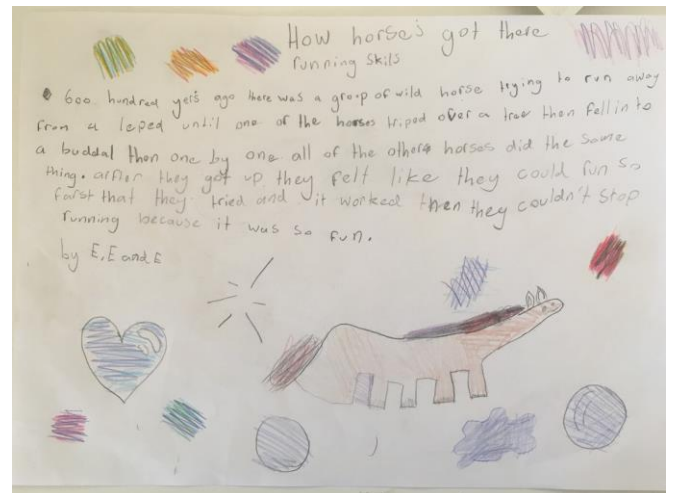 How horse's got there
running skils
600 hundred yers ago there was a group of wild horse trying to run away
from a leped until one of the horses triped over a tree then fell in to
a buddal then one by one all of the others horses did the same
thing. arfter they got up they felt like they could run so
farst that they tried and it worked then they couldn't stop
running because it was so fun.
by E, E and E